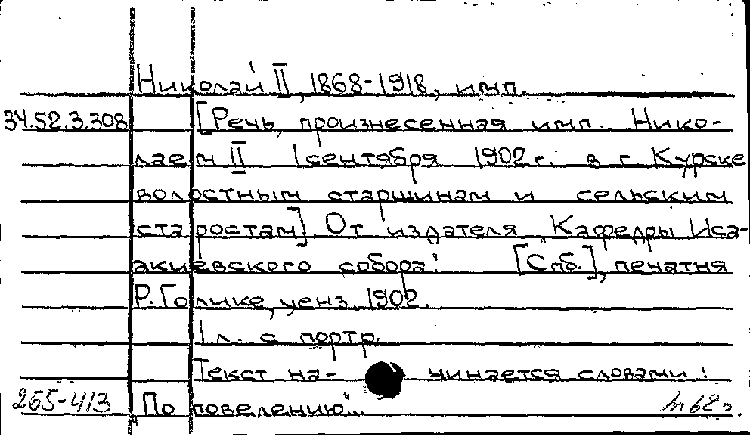 Николай II, 1868-1918, имп.
34.52.3.308 [Речь, произнесенная имп. Нико-
лаем II 1 сентября 1902 г. в г. Курске
волостным старшинам и сельским
старостам]. От издателя "Кафедры Иса-
акиевского собора". [Спб.], печатня
Р. Голике, ценз. 1902.
1 л. с портр.
Текст на- чинается словами:
265-413 "По повелению"...